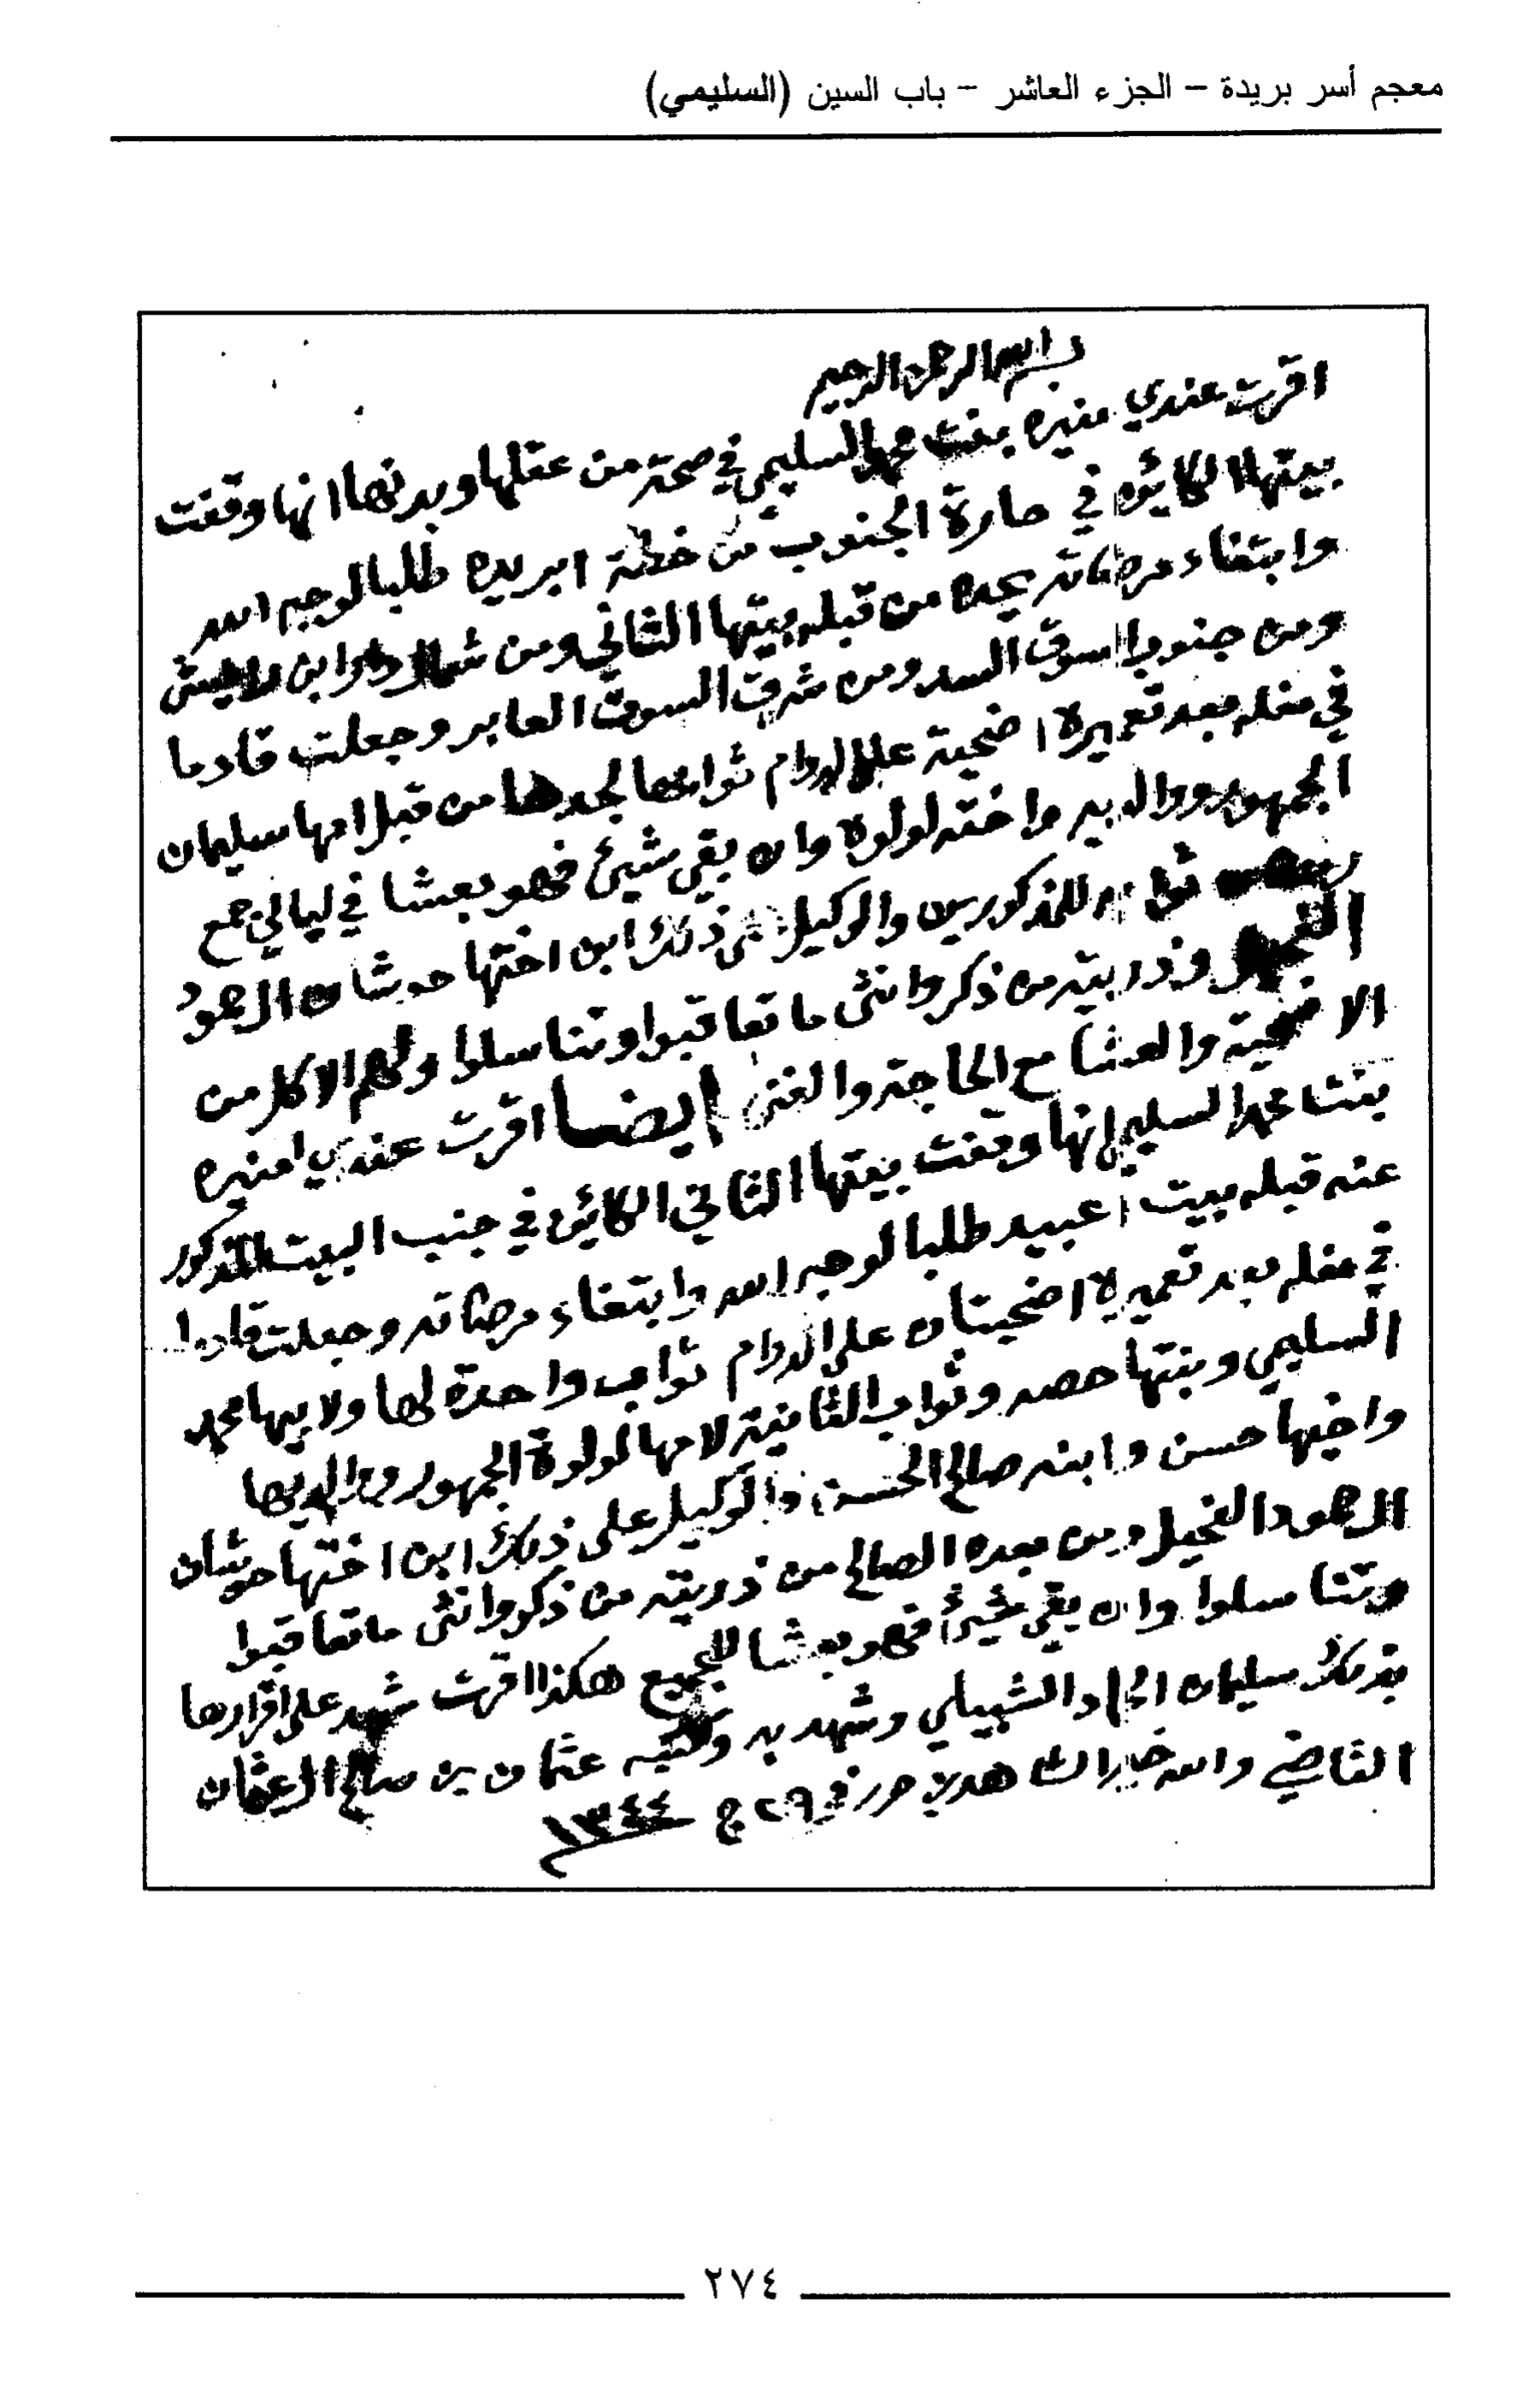 معجم أسر بريدة – الجزء العاشر – باب السين (السليمي)
بسم الله الرحمن الرحيم
اقرت عندي منيره بنت محمد السليمي في صحة من عقلها وبدنها انها وقفت
بيتها الكائن في حارة الجنوب من خطة ابريده طلبا لوجه الله
وابتغاء مرضاته يحده من قبله بيتها الثاني ومن شمال دار ابن
ومن جنوب اسوق السد ومن شرق السوق العابر وجعلت قادما
في مغله بعد تعميره اضحية على الدوام ثوابها لجدها من قبل امها سليمان
الجمهور ووالديه واخته لولوة وان بقي شيئ فهو بعشا في ليالي جمع
ثوابه للمذكورين والوكيل على ذلك ابن اختها حوشان الحمود
وذريته من ذكر وانثى ما تعاقبوا وتناسلوا ولهم الاكل من
الاضحية والعشا مع الحاجة والغنى ايضا اقرت عندي امنيره
بنت محمد السليمي انها وقفت بيتها الثاني الكائن في جنب البيت المذكور
عنه قبله بيت اعبيد طلبا لوجه الله وابتغاء مرضاته وجعلت قادما
في مغله بعد تعميره اضحيتان على الدوام ثواب واحدة لها ولابيها محمد
السليمي وبنتها حصه وثواب الثانية لامها لولوة الجمهور ووالديها
واخيها حسن وابنه صالح الحسن والوكيل على ذلك ابن اختها حوشان
الحمود النحيل ومن بعده الصالح من ذريته من ذكر وانثى ما تعاقبوا
وتناسلوا وان بقي شيئ فهو بعشا للجميع هكذا اقرت شهد على اقرارها
بذلك سليمان الحماد الشبيلي وشهد به وكتبه عثمان بن صالح العثمان
القاضي والله خير الشاهدين حرر في ٢٩ ج ١٣٤٤
٢٧٤